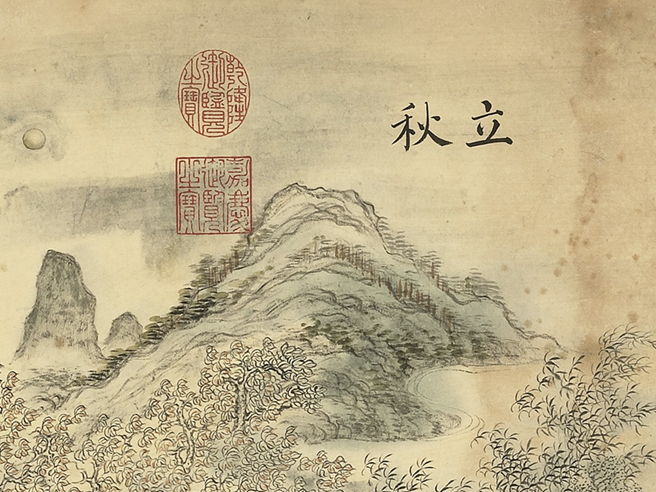 立秋
乾隆御覽之寶
嘉慶御覽之寶